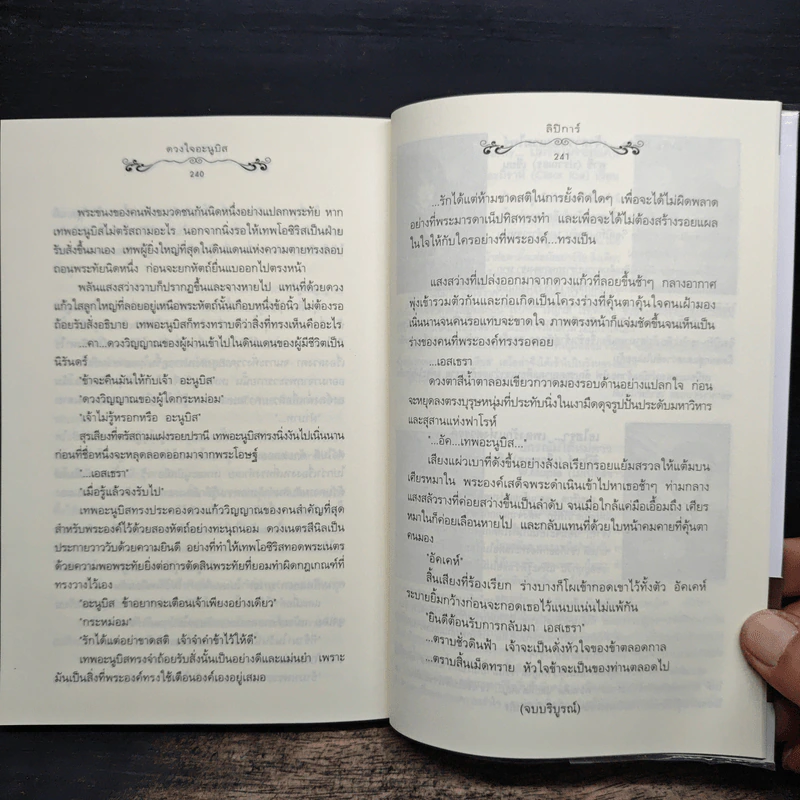 ดวงใจอะนูบิส
240
พระขนงของคนฟังขมวดชนกันนิดหนึ่งอย่างแปลกพระทัย หาก
เทพอะนูบิสไม่ตรัสถามอะไร นอกจากนิ่งรอให้เทพโอซิริสเป็นฝ่าย
รับสั่งขึ้นมาเอง เทพผู้ยิ่งใหญ่ที่สุดในดินแดนแห่งความตายทรงลอบ
ถอนพระทัยนิดหนึ่ง ก่อนจะยกหัตถ์ยื่นแบออกไปตรงหน้า
พลันแสงสว่างวาบก็ปรากฏขึ้นและจางหายไป แทนที่ด้วยดวง
แก้วใสลูกใหญ่ที่ลอยอยู่เหนือพระหัตถ์นั้นเกือบหนึ่งข้อนิ้ว ไม่ต้องรอ
ถ้อยรับสั่งอธิบาย เทพอะนูบิสก็ทรงทราบดีว่าสิ่งที่ทรงเห็นคืออะไร
...คา...ดวงวิญญาณของผู้ผ่านเข้าไปในดินแดนของผู้มีชีวิตเป็น
นิรันดร์
"ข้าจะคืนมันให้กับเจ้า อะนูบิส"
"ดวงวิญญาณของผู้ใดกระหม่อม"
"เจ้าไม่รู้หรอกหรือ อะนูบิส"
สุรเสียงที่ตรัสถามแฝงรอยปรานี เทพอะนูบิสทรงนิ่งงันไปเนิ่นนาน
ก่อนที่ชื่อหนึ่งจะหลุดลอดออกมาจากพระโอษฐ์
"...เอสเธรา"
"เมื่อรู้แล้วจงรับไป"
เทพอะนูบิสทรงประคองดวงแก้ววิญญาณของคนสำคัญที่สุด
สำหรับพระองค์ไว้ด้วยสองหัตถ์อย่างทะนุถนอม ดวงเนตรสีนิลเป็น
ประกายวาววับด้วยความยินดี อย่างที่ทำให้เทพโอซิริสทอดพระเนตร
ด้วยความพอพระทัยยิ่งต่อการตัดสินพระทัยที่ยอมทำผิดกฎเกณฑ์ที่
ทรงวางไว้เอง
"อะนูบิส ข้าอยากจะเตือนเจ้าเพียงอย่างเดียว"
"กระหม่อม"
"รักได้แต่อย่าขาดสติ เจ้าจำคำข้าไว้ให้ดี"
เทพอะนูบิสทรงจำถ้อยรับสั่งนั้นเป็นอย่างดีและแม่นยำ เพราะ
มันเป็นสิ่งที่พระองค์ทรงใช้เตือนองค์เองอยู่เสมอ
ลิปิการ์
241
...รักได้แต่ห้ามขาดสติในการยั้งคิดใดๆ เพื่อจะได้ไม่ผิดพลาด
อย่างที่พระมารดาเน็ปทิสทรงทำ และเพื่อจะได้ไม่ต้องสร้างรอยแผล
ในใจให้กับใครอย่างที่พระองค์...ทรงเป็น
แสงสว่างที่เปล่งออกมาจากดวงแก้วที่ลอยขึ้นช้าๆ กลางอากาศ
พุ่งเข้ารวมตัวกันและก่อเกิดเป็นโครงร่างที่คุ้นตาคุ้นใจคนเฝ้ามอง
เนิ่นนานจนคนรอแทบจะขาดใจ ภาพตรงหน้าก็แจ่มชัดขึ้นจนเห็นเป็น
ร่างของคนที่พระองค์ทรงรอคอย
...เอสเธรา
ดวงตาสีน้ำตาลอมเขียวกวาดมองรอบด้านอย่างแปลกใจ ก่อน
จะหยุดลงตรงบุรุษหนุ่มที่ประทับนิ่งในเงามืดดุจรูปปั้นประดับมหาวิหาร
และสุสานแห่งฟาโรห์
"...อัค...เทพอะนูบิส..."
เสียงแผ่วเบาที่ดังขึ้นอย่างลังเลเรียกรอยแย้มสรวลให้แต้มบน
เศียรหมาใน พระองค์เสด็จพระดำเนินเข้าไปหาเธอช้าๆ ท่ามกลาง
แสงสลัวรางที่ค่อยสว่างขึ้นเป็นลำดับ จนเมื่อใกล้แค่มือเอื้อมถึง เศียร
หมาในก็ค่อยเลือนหายไป และกลับแทนที่ด้วยใบหน้าคมคายที่คุ้นตา
คนมอง
"อัคเคห์"
สิ้นเสียงที่ร้องเรียก ร่างบางก็โผเข้ากอดเขาไว้ทั้งตัว อัคเคห์
ระบายยิ้มกว้างก่อนจะกอดเธอไว้แนบแน่นไม่แพ้กัน
"ยินดีต้อนรับการกลับมา เอสเธรา"
...ตราบชั่วดินฟ้า เจ้าจะเป็นดั่งหัวใจของข้าตลอดกาล
...ตราบสิ้นเม็ดทราย หัวใจข้าจะเป็นของท่านตลอดไป
(จบบริบูรณ์)